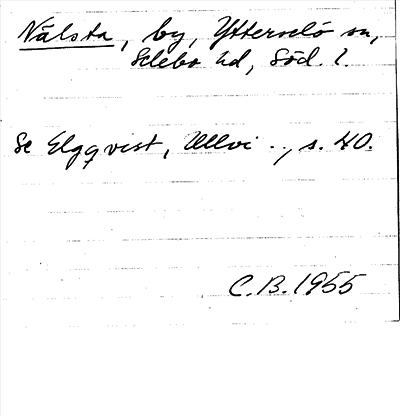 Nälsta, by, Ytterselö sn,
Selebo hd, Söd. l.
Se Elgqvist, Ullvi .., s. 40.
C.B. 1955